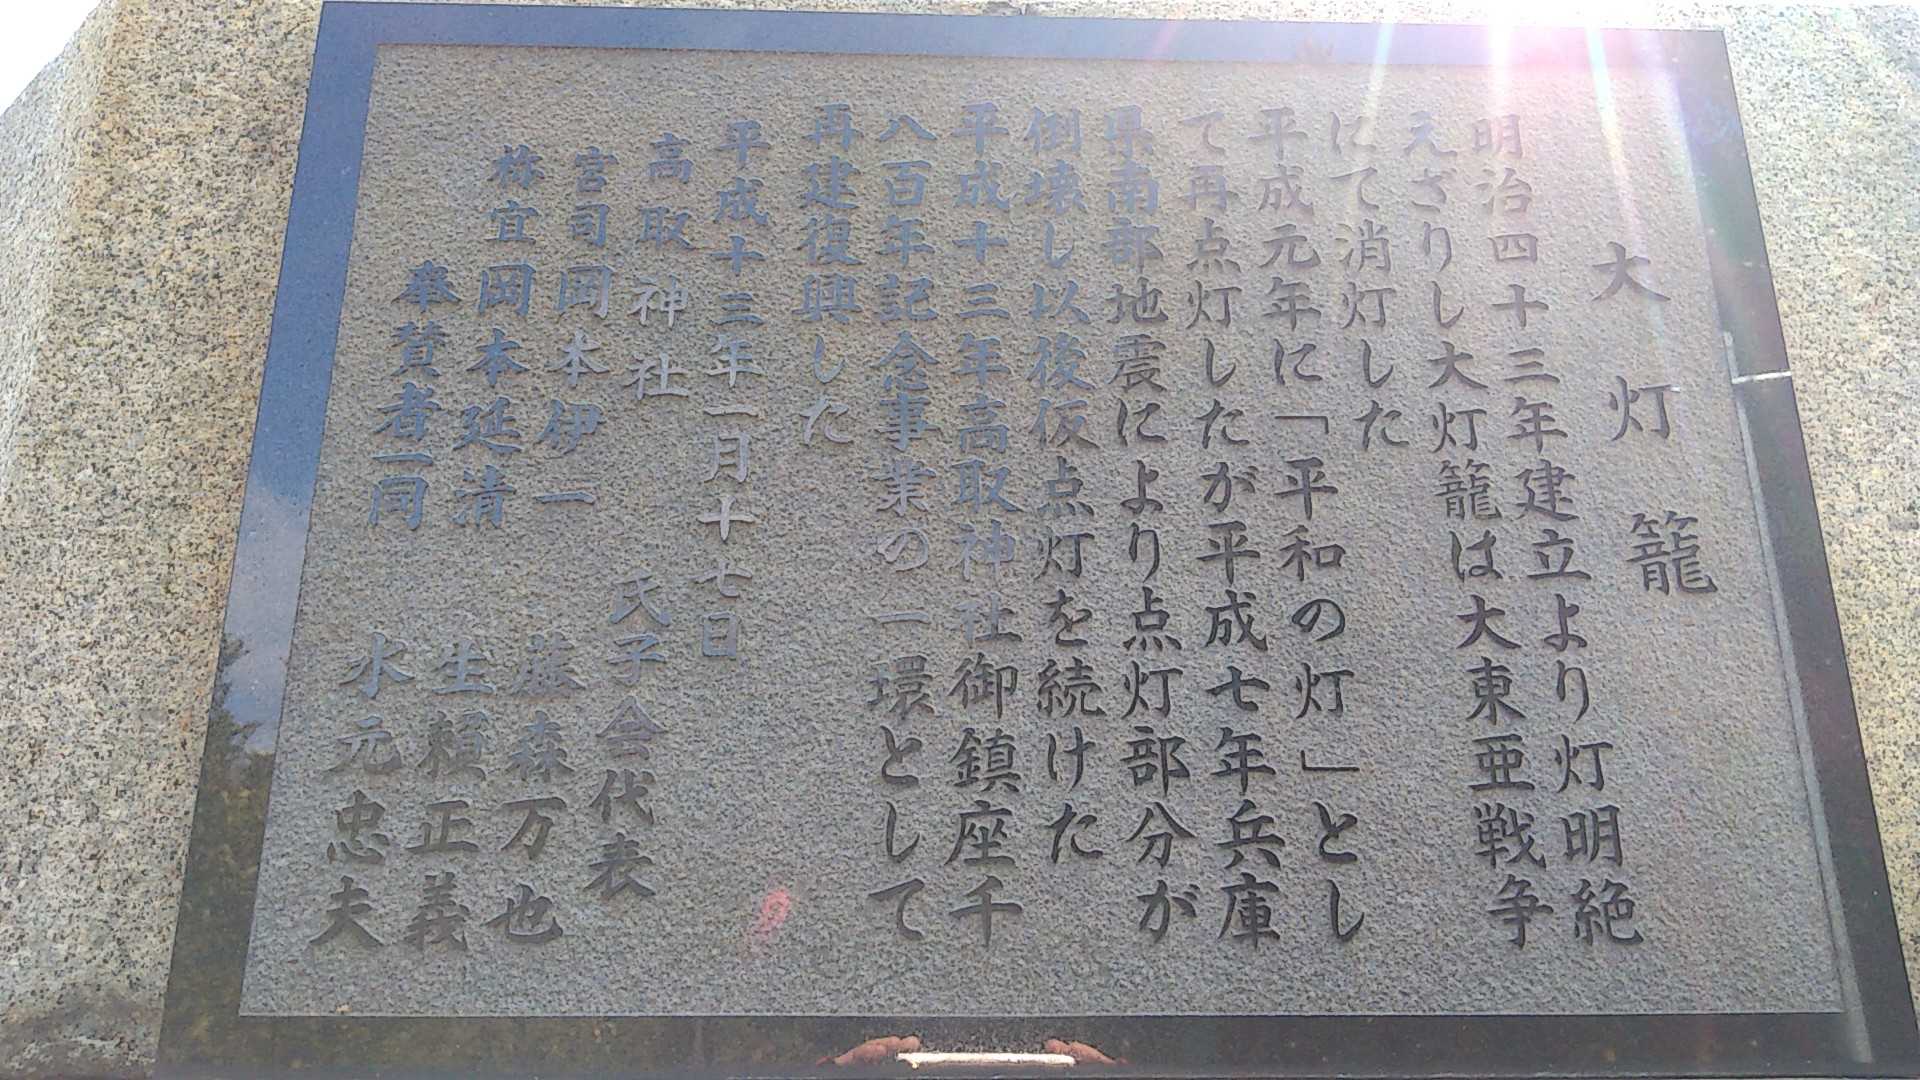 大灯籠
明治四十三年建立より灯明絶
えざりし大灯籠は大東亜戦争
にて消灯した
平成元年に「平和の灯」とし
て再点灯したが平成七年兵庫
県南部地震により点灯部分が
倒壊し以後仮点灯を続けた
平成十三年高取神社御鎮座千
八百年記念事業の一環として
再建復興した
平成十三年一月十七日
高取神社
氏子会代表
宮司岡本伊一
藤森万也
祢宜岡本延清
生頼正義
奉賛者一同
水元忠夫